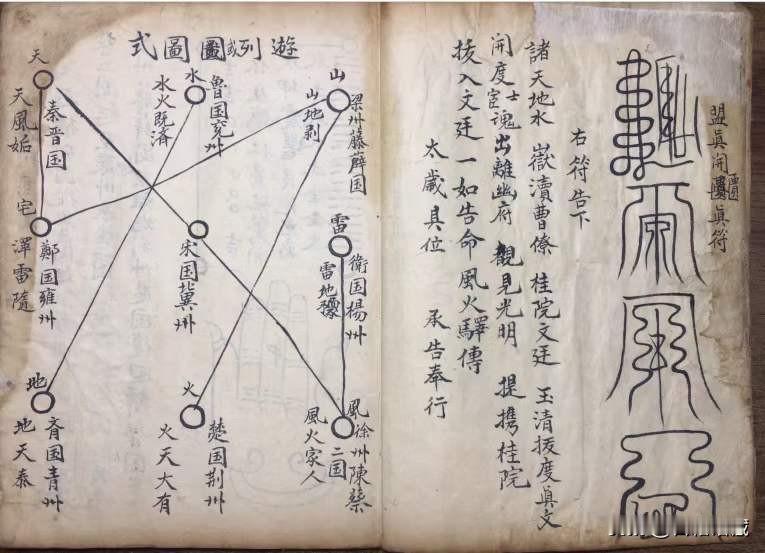 盟眞開眞符
右符告下
諸天地水 嶽瀆曹僚 桂院文廷 玉清拔度眞文
開度宦士魂出離幽府 觀見光明 提携桂院
拔入文廷 一如告命 風火驛傳
太歲具位 承告奉行
遊列或圖圖式
山
梁州藤薜国
山地剥
雷
衛国楊州
雷地豫
風徐州陳蔡
二国
風火家人
水
魯国兖州
水火既済
宋国冀州
火
楚国荆州
火天大有
天
秦晋国
天風姤
宅
鄭国雍州
澤雷隨
地
斉国青州
地天泰